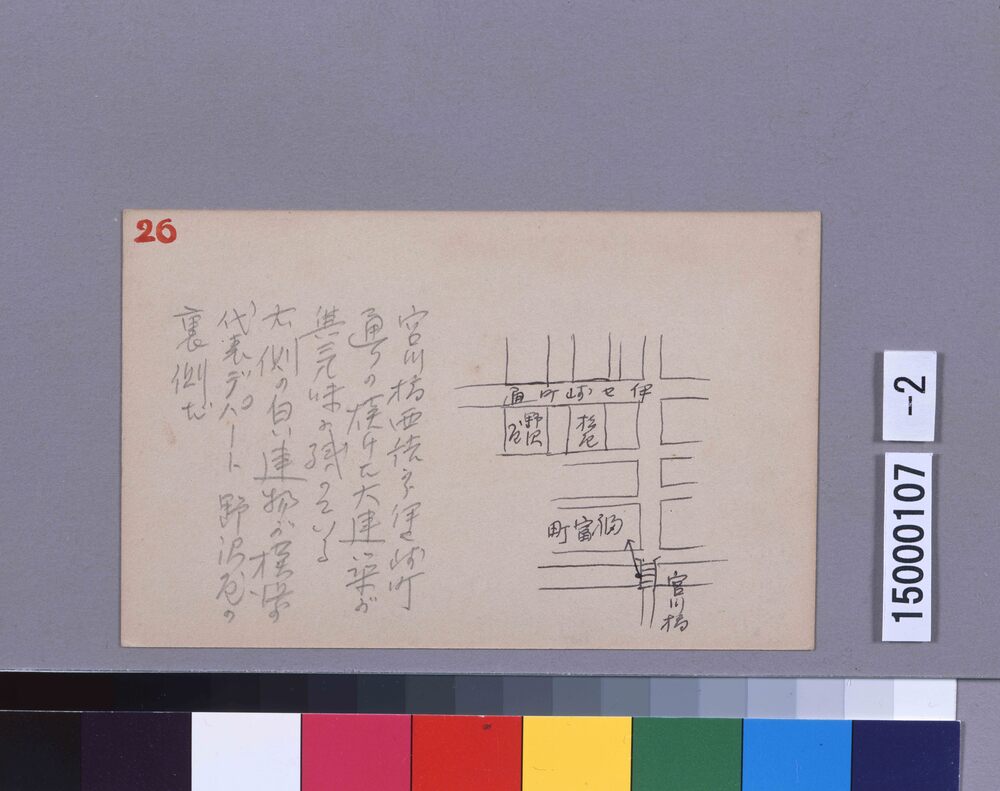 26
宮川橋西読ら伊セ崎町
通りの焼けた大建築が
無気味に残っている
右側の白い建物が横浜の
代表デパート野沢屋の
裏側だ
伊セ崎町通
野沢屋
松屋
福富町
宮川橋
15000107
--2